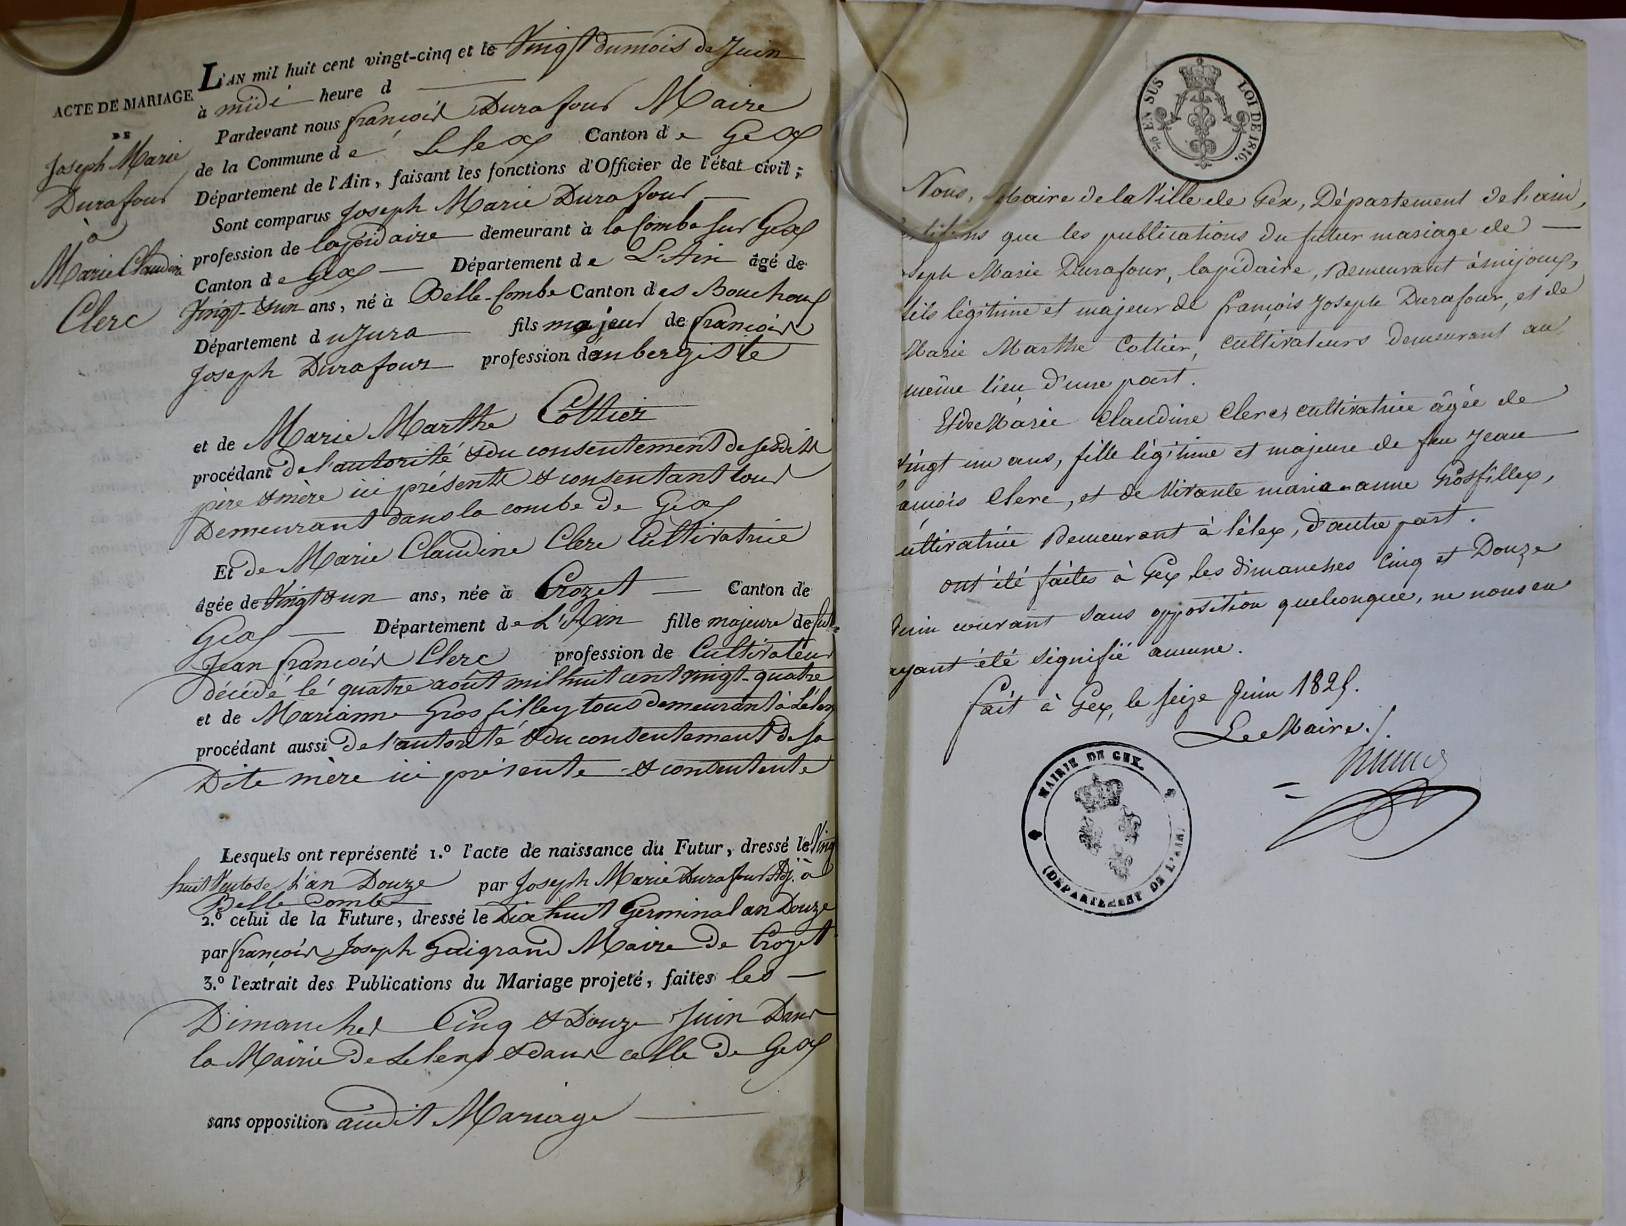 ACTE DE MARIAGE
DE
Joseph Marie
Durafour
à
Marie Claudine
Clerc
L'AN mil huit cent vingt-cinq et le Vingt du mois de Juin
à midi heure d
Pardevant nous françois Durafour Maire
de la Commune de Lelex Canton de Gex
Département de l'Ain, faisant les fonctions d'Officier de l'état civil;
Sont comparus Joseph Marie Durafour
profession de lapidaire demeurant à la Combe sur Gex
Canton de Gex Département de L'Ain âgé de
Vingt & un ans, né à Belle-Combe Canton des Bouchoux
Département du Jura fils majeur de françois
Joseph Durafour profession d'aubergiste
et de Marie Marthe Cottier
procédant de l'autorité & du consentement de sesdits
père & mère ici présents & consentant tous
Demeurant dans la combe de Gex
Et de Marie Claudine Clerc Cultivatrice
âgée de Vingt & un ans, née à Crozet Canton de
Gex Département de L'Ain fille majeure de fut
Jean françois Clerc profession de Cultivateur
décédé lé quatre août mil huit cent vingt-quatre
et de Marianne Grosfilley tous demeurant à Lélex
procédant aussi de l'autorité & du consentement de sa
Dite mère ici présente & consentente
Lesquels ont représenté 1.º l'acte de naissance du Futur, dressé le Vingt
huit Ventose l'an Douze par Joseph Marie Durafour Adj. à
Belle Combe
2.º celui de la Future, dressé le Dix huit Germinal an Douze
par françois Joseph Guigrand Maire de Crozet
3.º l'extrait des Publications du Mariage projeté, faites les
Dimanches Cinq & Douze Juin Dans
la Mairie de Lelex & dans celle de Gex
sans opposition audit Mariage
EN SUS LOI DE 1816.
Nous, Maire de la Ville de Gex, Département de l'ain,
que les publications du futur mariage de
seph Marie Durafour, lapidaire, demeurant à mijoux,
fils légitime et majeur de françois Joseph Durafour, et de
Marie Marthe Cottier, cultivateurs demeurant au
même lieu d'une part.
Et de Marie Claudine Clerc, cultivatrice âgée de
vingt un ans, fille légitime et majeure de feu Jean
ançois Clerc, et de vivante marie-anne Grosfilley,
cultivatrice demeurant à lélex, d'autre part.
ont été faites à Gex les dimanches Cinq et Douze
Juin courant sans opposition quelconque, ne nous en
ayant été signifié aucune.
fait à Gex, le seize Juin 1825.
Le Maire.
MAIRIE DE GEX.
(DÉPARTEMENT DE L'AIN)